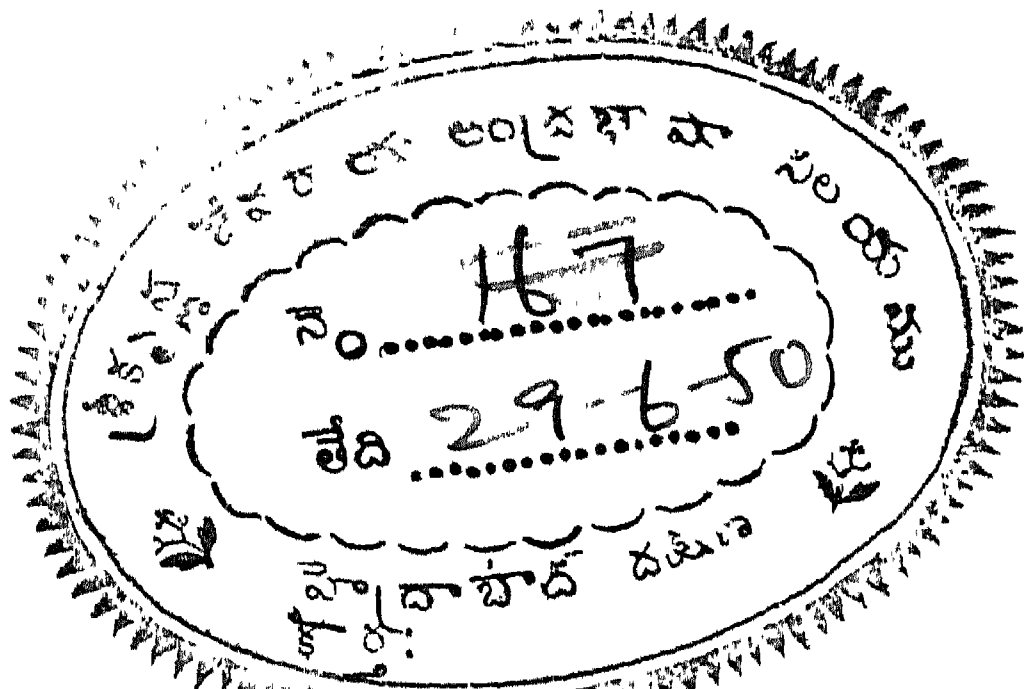 శ్రీకృష్ణదేవరాయ ఆంధ్రభాషానిలయము
నెం 167
తేది 29-6-50
హైద్రాబాద్